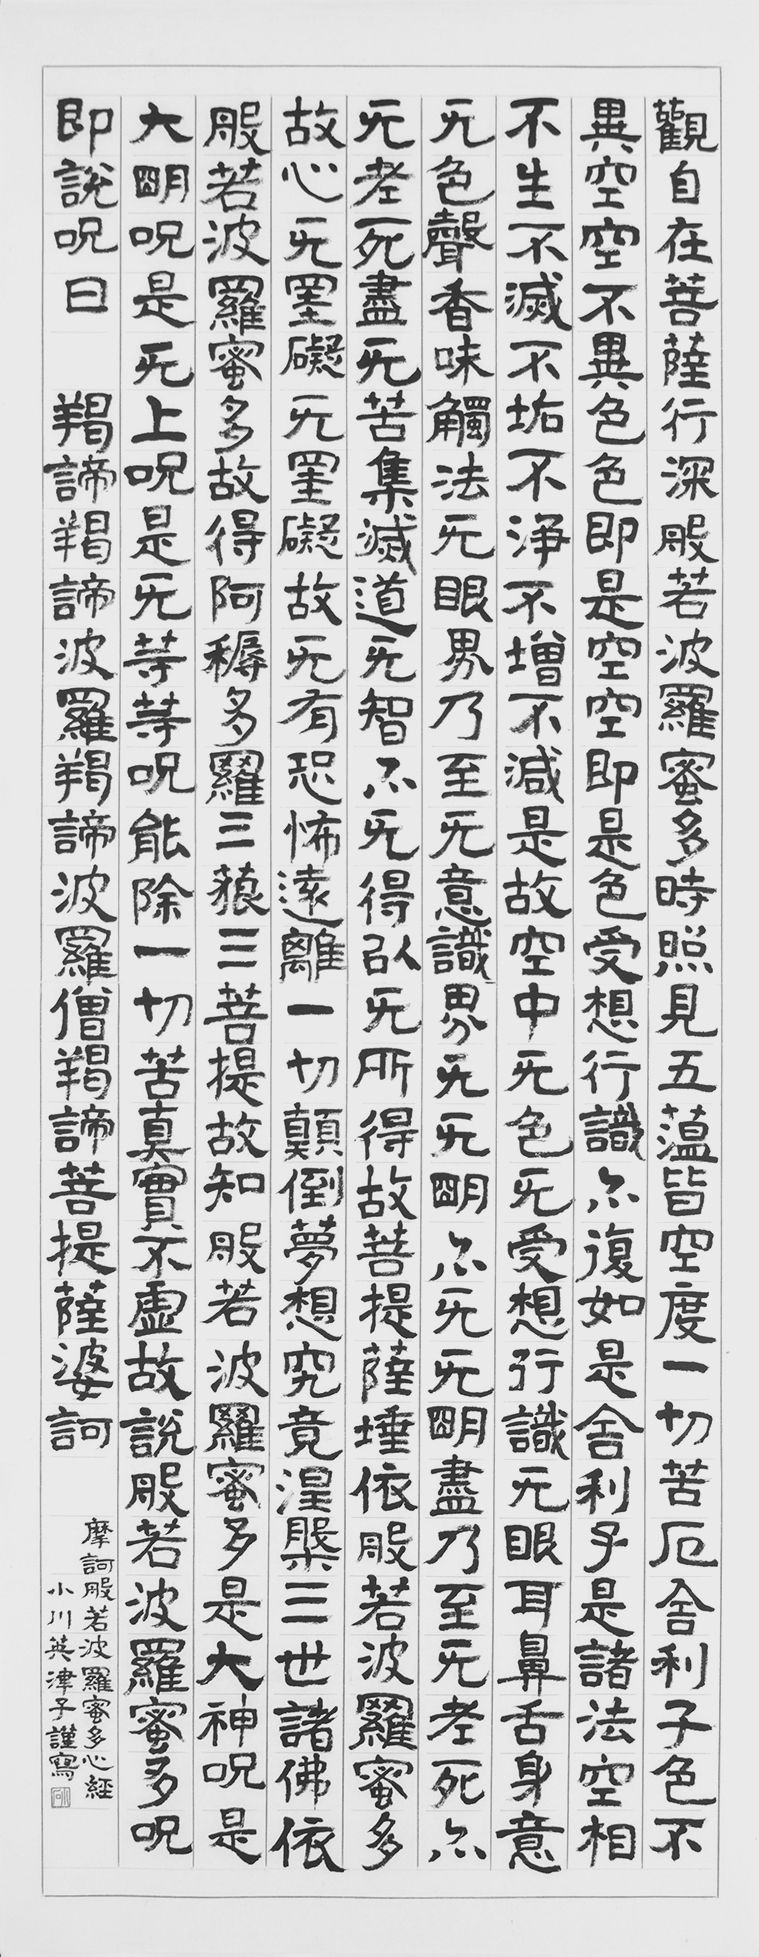 觀自在菩薩行深般若波羅蜜多時照見五蘊皆空度一切苦厄舍利子色不
異空空不異色色即是空空即是色受想行識亦復如是舍利子是諸法空相
不生不滅不垢不浄不增不減是故空中无色无受想行識无眼耳鼻舌身意
无色聲香味觸法无眼界乃至无意識界无无明亦无无明盡乃至无老死亦
无老死盡无苦集滅道无智亦无得以无所得故菩提薩埵依般若波羅蜜多
故心无罣礙无罣礙故无有恐怖遠離一切顛倒夢想究竟涅槃三世諸佛依
般若波羅蜜多故得阿耨多羅三藐三菩提故知般若波羅蜜多是大神呪是
大明呪是无上呪是无等等呪能除一切苦真實不虛故說般若波羅蜜多呪
即說呪曰 羯諦羯諦波羅羯諦波羅僧羯諦菩提薩婆訶
摩訶般若波羅蜜多心経
小川英津子謹寫